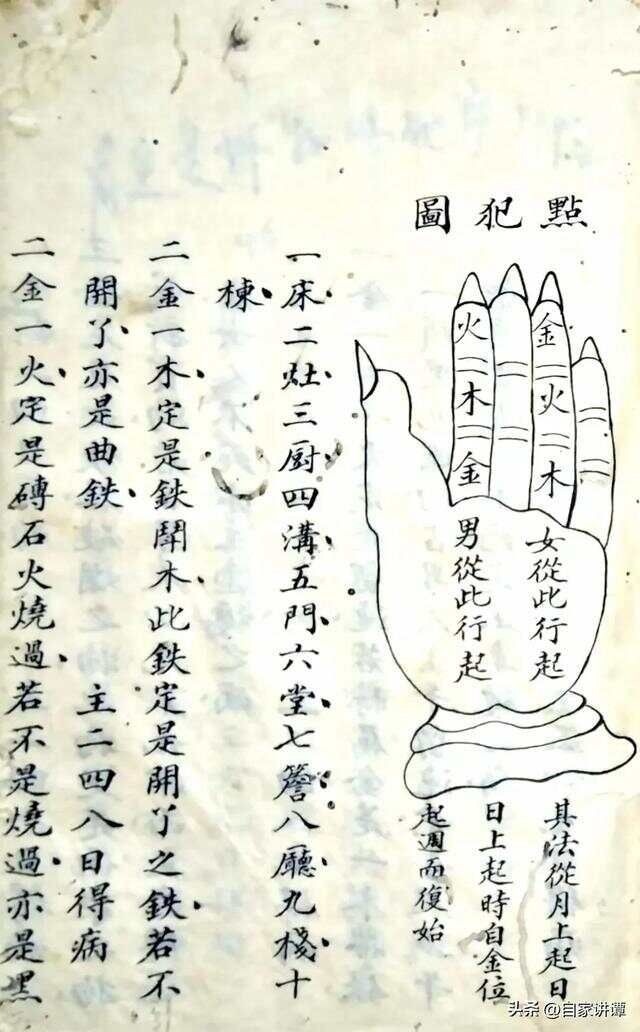 點犯圖
火
木
金
金
火
木
女從此行起
男從此行起
其法從月上起日
日上起時自金位
起週而復始
一床二灶三厨四溝五門六堂七簷八廳九棧十
棟
二金一木定是鉄鬪木此鉄定是開丫之鉄若不
開丫亦是曲鉄 主二四八日得病
二金一火定是磚石火燒過若不是燒過亦是黑
头条 @自家讲谭